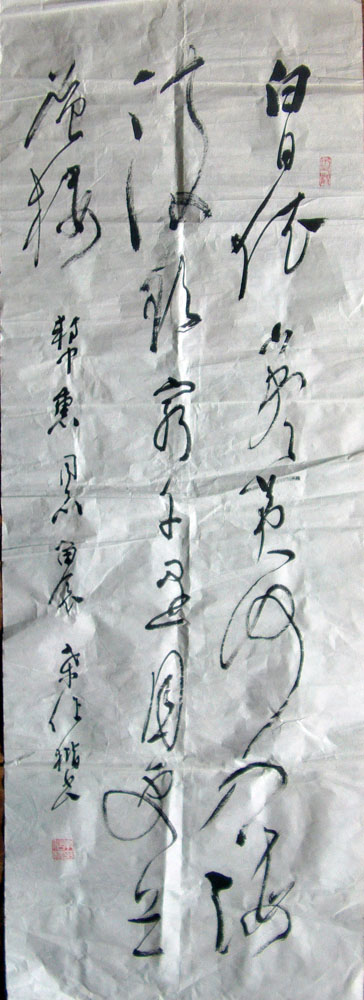 白日依山尽黄河入海
流欲穷千里目更上一
层楼
惠同志留念